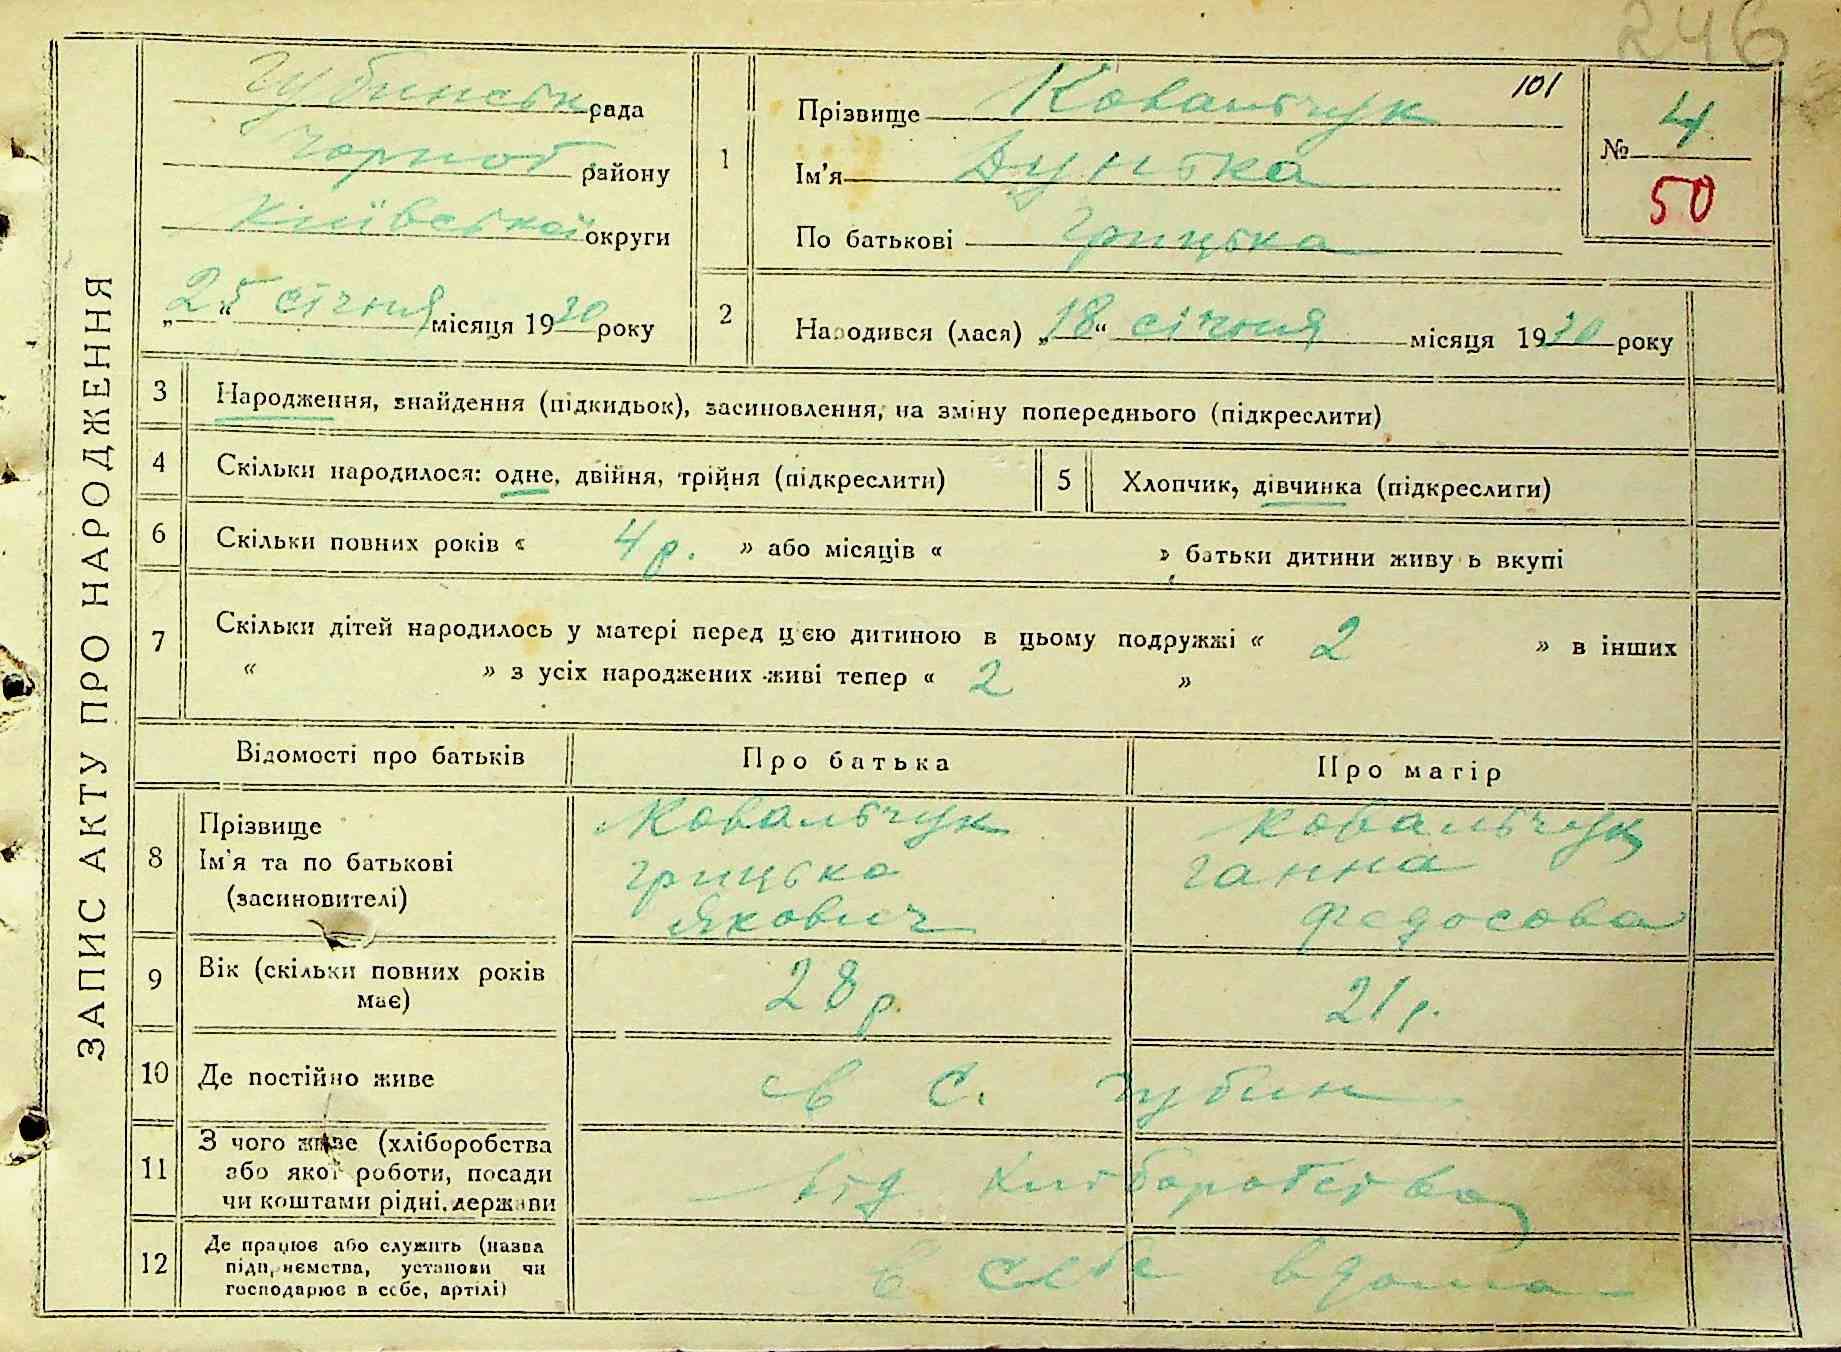 246
ЗАПИС АКТУ ПРО НАРОДЖЕННЯ
Губинськ рада
Чорноб району
Київської округи
„25“ січня місяця 1930 року
1
Прізвище Ковальчук
101
Ім'я Дунька
По батькові Грицька
№ 4
50
2 Народився (лася) „18“ січня місяця 1930 року
3 Народження, знайдення (підкидьок), засиновлення, на зміну попереднього (підкреслити)
4 Скільки народилося: одне, двійня, трійня (підкреслити) 5 Хлопчик, дівчинка (підкреслити)
6 Скільки повних років « 4 р. » або місяців « » батьки дитини живуть вкупі
7 Скільки дітей народилось у матері перед цією дитиною в цьому подружжі « 2 » в інших
« » з усіх народжених живі тепер « 2 »
Відомості про батьків Про батька Про матір
8 Прізвище
Ім'я та по батькові
(засиновителі)
Ковальчук
Грицько
Якович
Ковальчук
Ганна
Федосова
9 Вік (скільки повних років
має)
28 р. 21 р.
10 Де постійно живе в с. Губин
11 З чого живе (хліборобства
або якої роботи, посади
чи коштами рідні, держави
від хліборобства
12 Де працює або служить (назва
підприємства, установи чи
господарює в себе, артілі)
в себе вдома